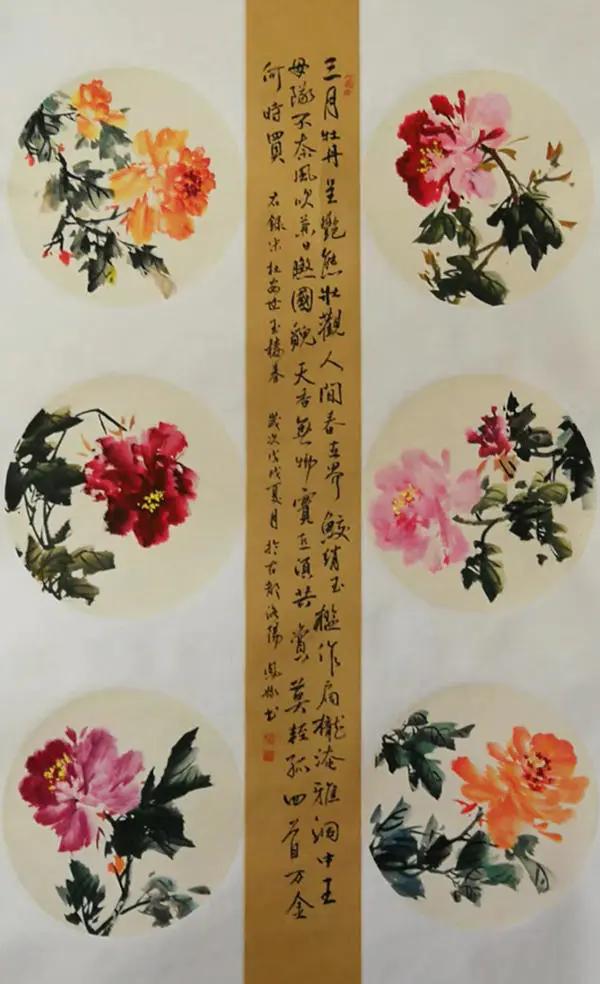 三月牡丹呈艷態壯觀人間春世界鮫綃玉檻作扃櫳淹雅洞中王
母隊不奈風吹兼日曬國貌天香無物賽直須共賞莫輕孤回首万金
何時買 右錄宋杜安世玉樓春 歲次戊戌夏月於古都洛陽 鳳書